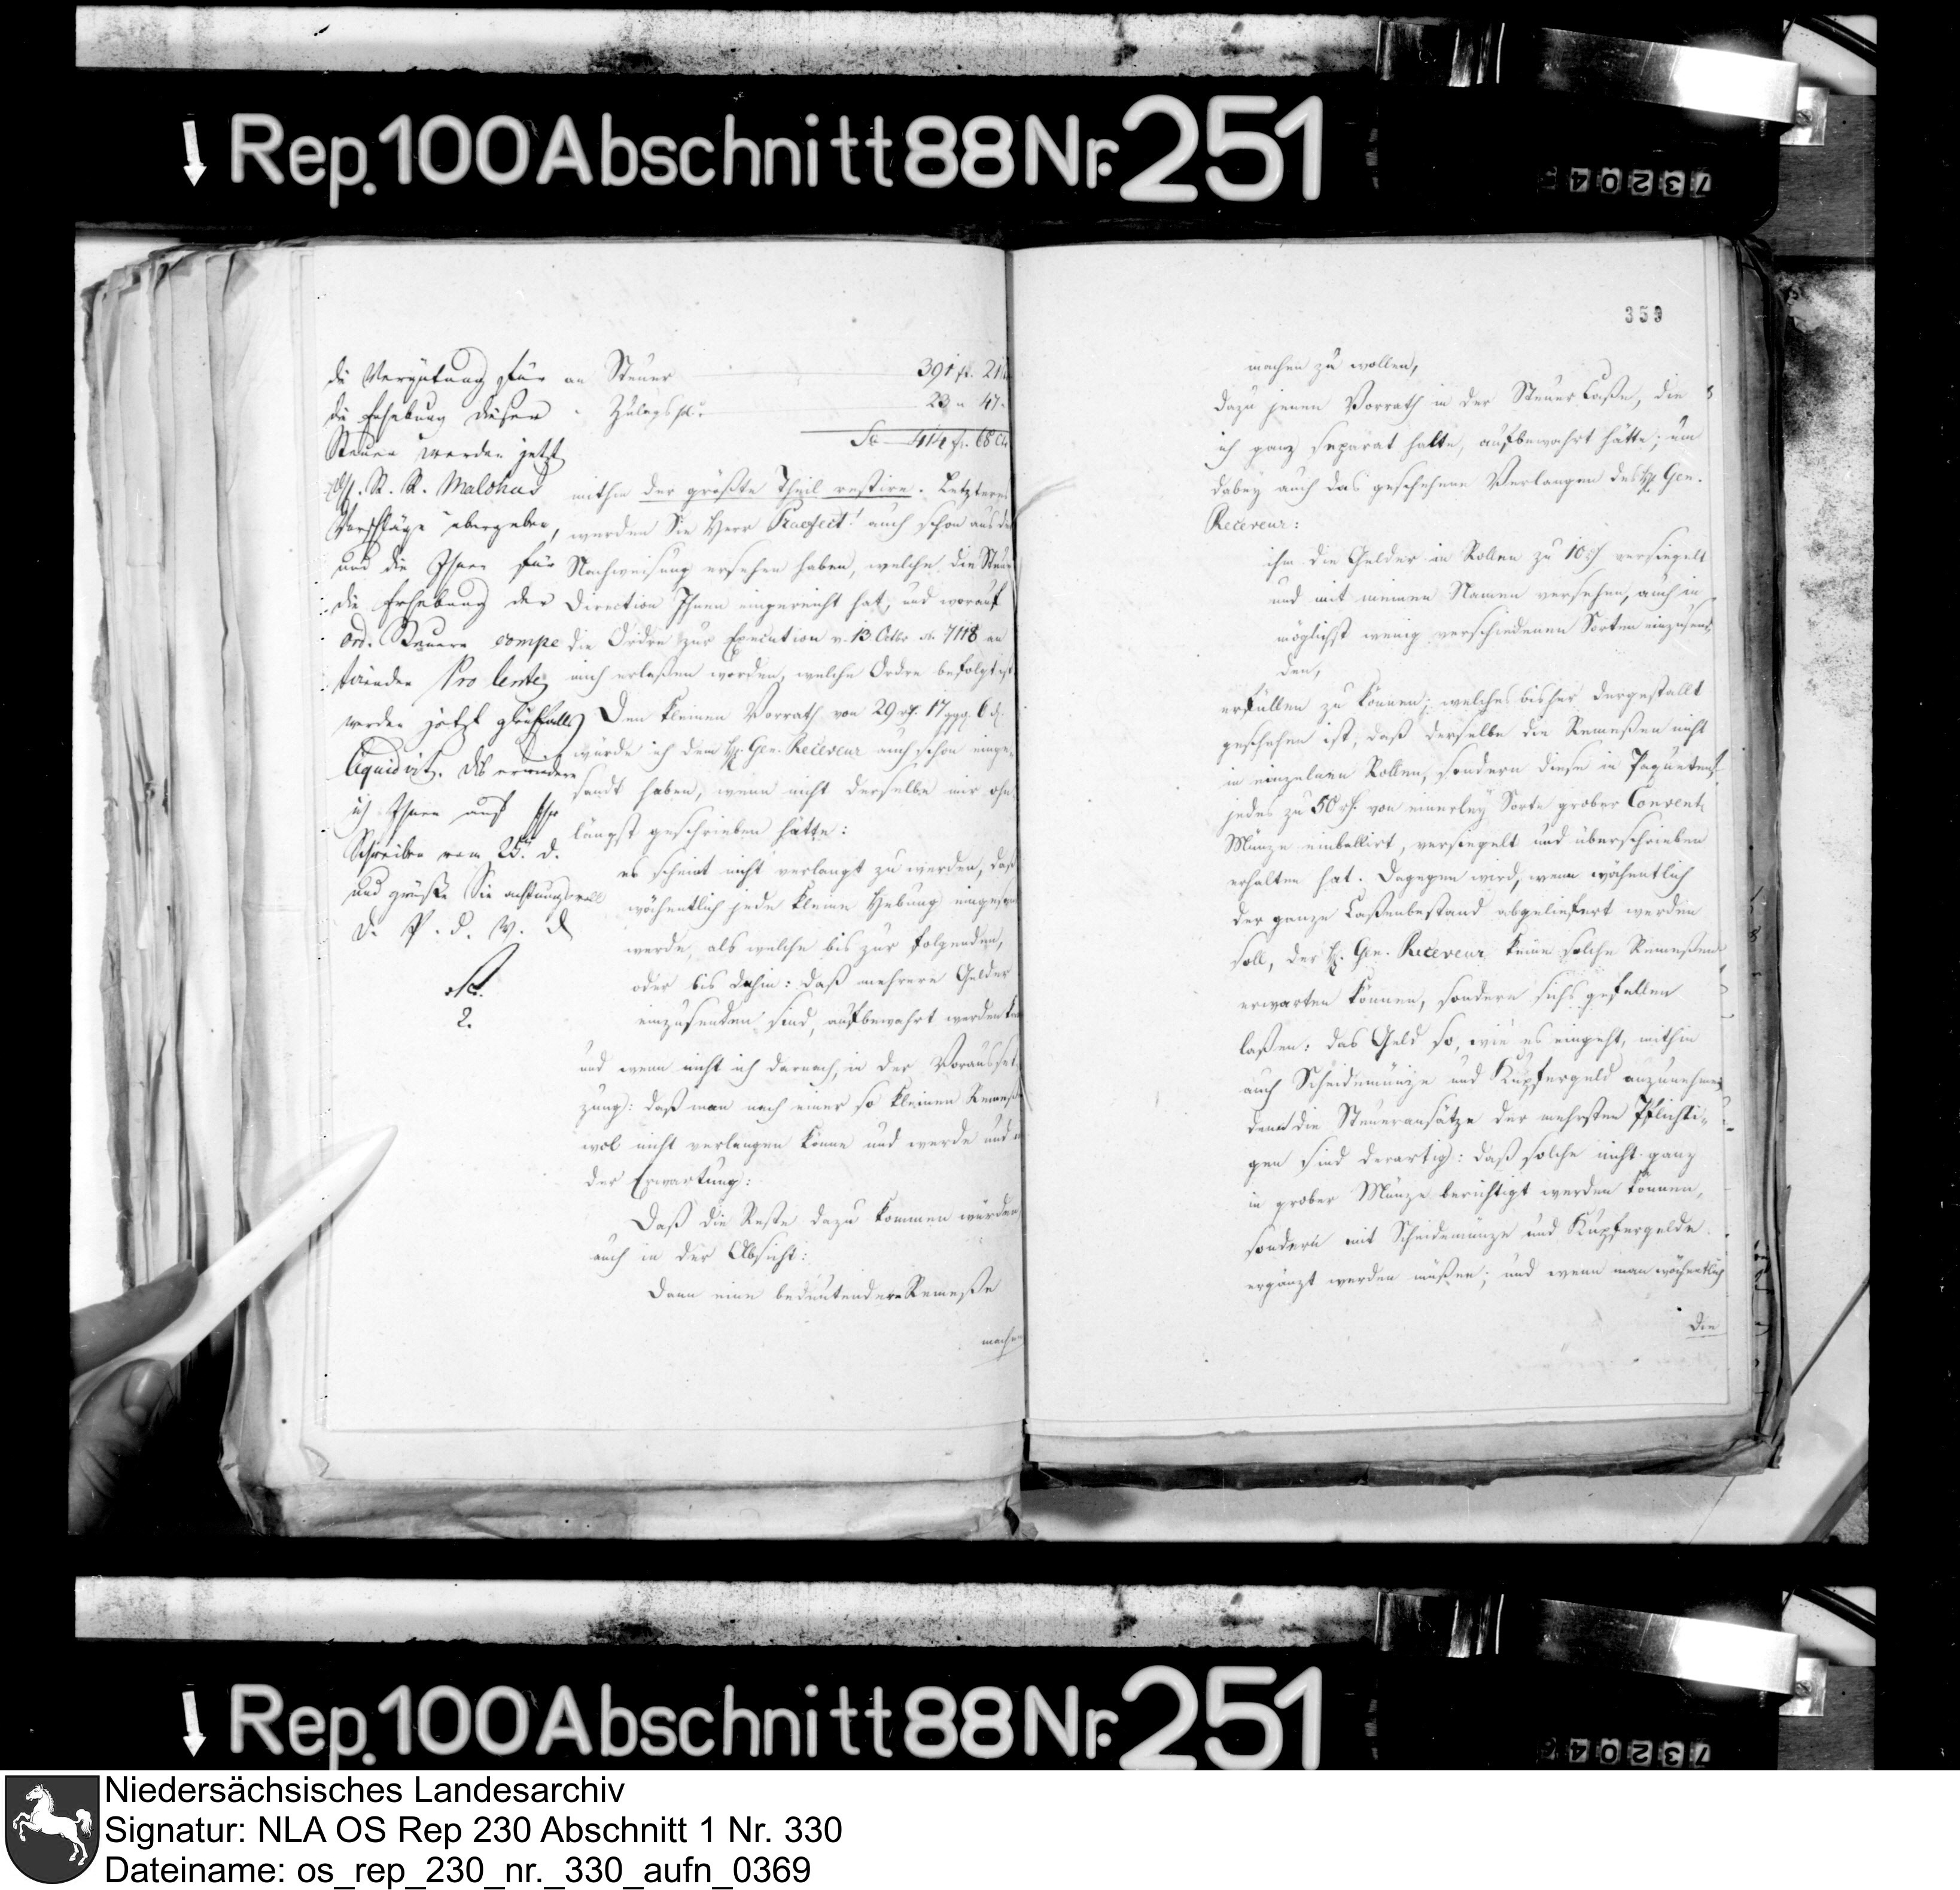 Rep. 100 Abschnitt 88 Nr. 251
73204
die Vergütung für
die Erhebung dieser
Steuer werden jetzt
Vorschläge übergeben,
und die Ihnen für
die Erhebung der
ord. Steuern compe
tirenden Procente
werden jetzt gleichfalls
liquidirt. Dies erwiedere
ich Ihnen auf Ihr
Schreiben vom 25. d.
und grüße Sie achtungsvoll
D. P. d. W. D
2.
an Steuer 391 fr. 21
" Zulags 23 " 47
Sa 414 fr. 68 Ct.
mithin der größte Theil restire. Letzteres
werden Sie Herr Praefect! auch schon aus der
Nachweisung ersehen haben, welche die Steuer
Direction Ihnen eingereicht hat, und worauf
die Ordre zur Execution v. 13 Octbr. No. 7118 an
mich erlaßen worden, welche Ordre befolgt ist
Den kleinen Vorrath von 29 rf. 17 ggr. 6 d.
würde ich dem H. Gen. Receveur auch schon einge-
sandt haben, wenn nicht derselbe mir ohn
längst geschrieben hätte:
es scheint nicht verlangt zu werden, daß
wöchentlich jede kleine Hebung
werde, als welche bis zur folgenden,
oder bis dahin: daß mehrere Gelder
einzusenden sind, aufbewahrt werden
und wenn nicht ich darnach, in der Vorausset
zung: daß man nach einer so kleinen Remeße
wol nicht verlangen könne und werde und in
der Erwartung:
Daß die Reste dazu kommen würden
auch in der Absicht:
Dann eine bedeutendere Remeße
machen
359
machen zu wollen,
dazu jenen Vorrath in der Steuer Caße, die
ich ganz separat halte, aufbewahrt hätte; um
dabey auch das geschehene Verlangen des H. Gen.
Receveur:
ihm die Gelder in Rollen zu 10 rf versiegelt
und mit meinem Namen versehen, auch in
möglichst wenig verschiedenen Sorten einzusen-
den,
erfüllen zu können; welches bisher dergestallt
geschehen ist, daß derselbe die Remeßen nicht
in einzelnen Rollen, sondern diese in Paqueten,
jedes zu 50 rf. von einerley Sorte grober Convent.
Münze einballirt, versiegelt und überschrieben
erhalten hat. Dagegen wird, wenn wöchentlich
der ganze Caßenbestand abgeliefert werden
soll, der H. Gen. Receveur keine solche Remeßen
erwarten können, sondern sichs gefallen
laßen: das Geld so, wie es eingeht, mithin
auch Scheidemünze und Kupfergeld anzunehmen
denn die Steueransätze der mehrsten Pflichti-
gen sind derartig: daß solche nicht ganz
in grober Münze berichtigt werden können,
sondern mit Scheidemünze und Kupfergelde
ergänzt werden müßen; und wenn man wöchentlich
die
Rep. 100 Abschnitt 88 Nr. 251
73204
Niedersächsisches Landesarchiv
Signatur: NLA OS Rep 230 Abschnitt 1 Nr. 330
Dateiname: os_rep_230_nr._330_aufn_0369